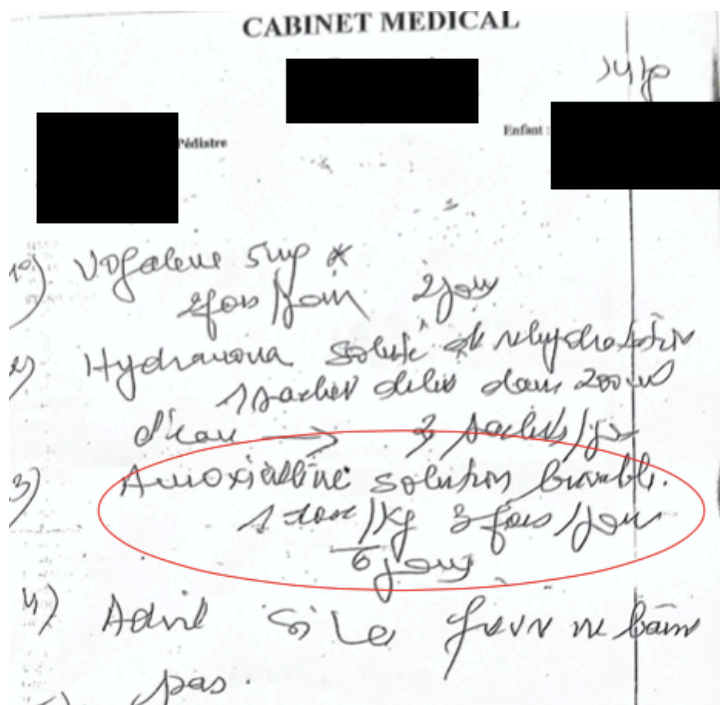 CABINET MEDICAL
Pédiatre
Enfant :
1°) Vogalene sup *
2 fois / jour 2 jours
2) Hydranova soluté de rehydration
1 sachet dilué dans 200 ml
d'eau → 3 sachets / jr
3) Amoxicilline solution buvable.
1 dose / kg 3 fois / jour
6 jours
4) Advil si la fievre ne baisse
pas.